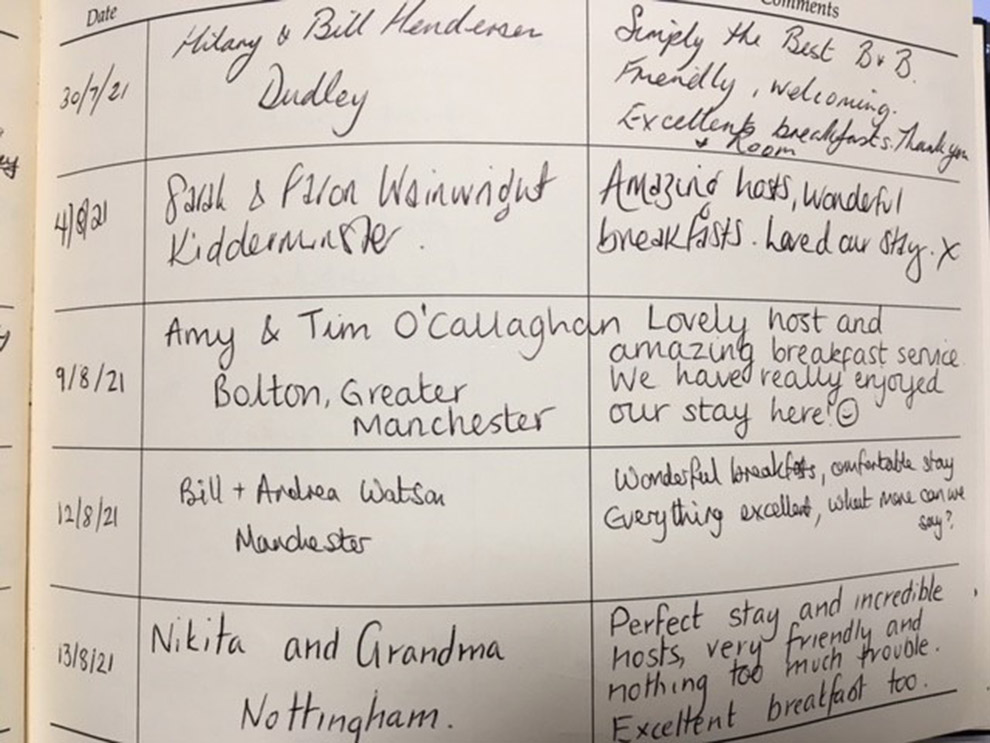 Date
Comments
30/7/21
Hilary & Bill Henderson
Dudley
Simply the Best B & B.
Friendly, welcoming.
Excellent breakfasts. Thank you
& Room
4/8/21
Sarah & Aaron Wainwright
Kidderminster.
Amazing hosts, wonderful
breakfasts. Loved our stay. X
9/8/21
Amy & Tim O'Callaghan
Bolton, Greater
Manchester
Lovely host and
amazing breakfast service.
We have really enjoyed
our stay here! ☺
12/8/21
Bill + Andrea Watson
Manchester
Wonderful breakfasts, comfortable stay
Everything excellent, what more can we
say?
13/8/21
Nikita and Grandma
Nottingham.
Perfect stay and incredible
hosts, very friendly and
nothing too much trouble.
Excellent breakfast too.